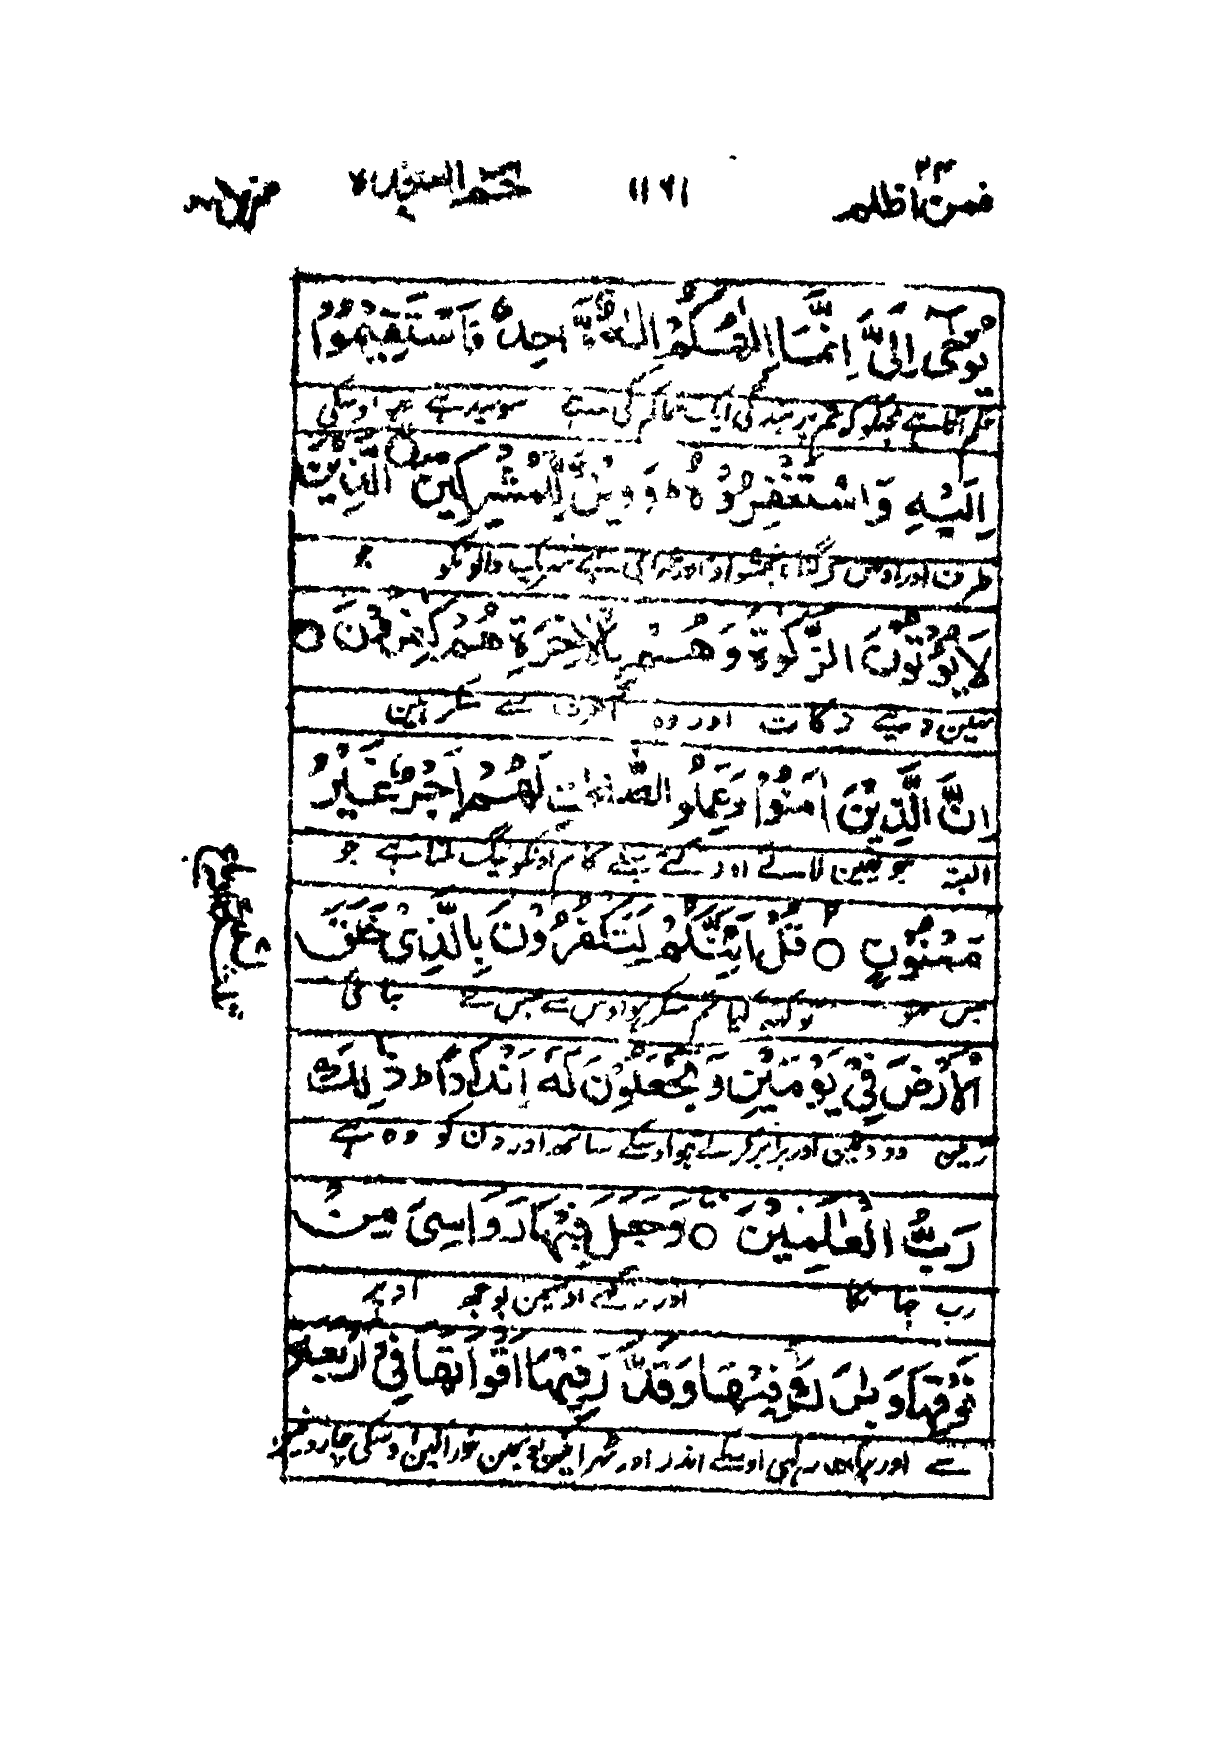 فمن اظلم ۲۴ ۱۱۷۱ حٰم السجدة منزل
يُوْحٰٓى اِلَىَّ اِنَّمَآ اِلٰهُكُمْ اِلٰهٌ وَّاحِدٌ فَاسْتَقِيْمُوْٓا
حکم آتا ہے مجھکو کہ تم پر بندگی ایک حاکم کی ہے سو سیدھے رہو اوسکی
اِلَيْهِ وَاسْتَغْفِرُوْهُ ط وَوَيْلٌ لِّلْمُشْرِكِيْنَ ○ الَّذِيْنَ
طرف اور اوس سے گناہ بخشواؤ اور خرابی ہے شریک والونکو جو
لَا يُؤْتُوْنَ الزَّكٰوةَ وَهُمْ بِالْاٰخِرَةِ هُمْ كٰفِرُوْنَ ○
نہین دیتے زکات اور وہ آخرت سے منکر ہین
اِنَّ الَّذِيْنَ اٰمَنُوْا وَعَمِلُوا الصّٰلِحٰتِ لَهُمْ اَجْرٌ غَيْرُ
البتہ جو یقین لائے اور کئے بھلے کام اونکو نیگ ملنا ہے جو
مَمْنُوْنٍ ○ قُلْ اَئِنَّكُمْ لَتَكْفُرُوْنَ بِالَّذِىْ خَلَقَ
بس نہو تو کہہ کیا تم منکر ہو اوس سے جس نے بنائی
الْاَرْضَ فِىْ يَوْمَيْنِ وَتَجْعَلُوْنَ لَهٗٓ اَنْدَادًا ط ذٰلِكَ
زمین دو دنمین اور برابر کرتے ہو اوسکے ساتھ اورون کو وہ ہے
رَبُّ الْعٰلَمِيْنَ ○ وَجَعَلَ فِيْهَا رَوَاسِىَ مِنْ
رب جہان کا اور رکھے اوسمین بوجھ اوپر
فَوْقِهَا وَبٰرَكَ فِيْهَا وَقَدَّرَ فِيْهَآ اَقْوَاتَهَا فِىْٓ اَرْبَعَةِ
سے اور برکت رکھی اوسکے اندر اور ٹھہرائین اوسمین خوراکین اوسکی چار دن